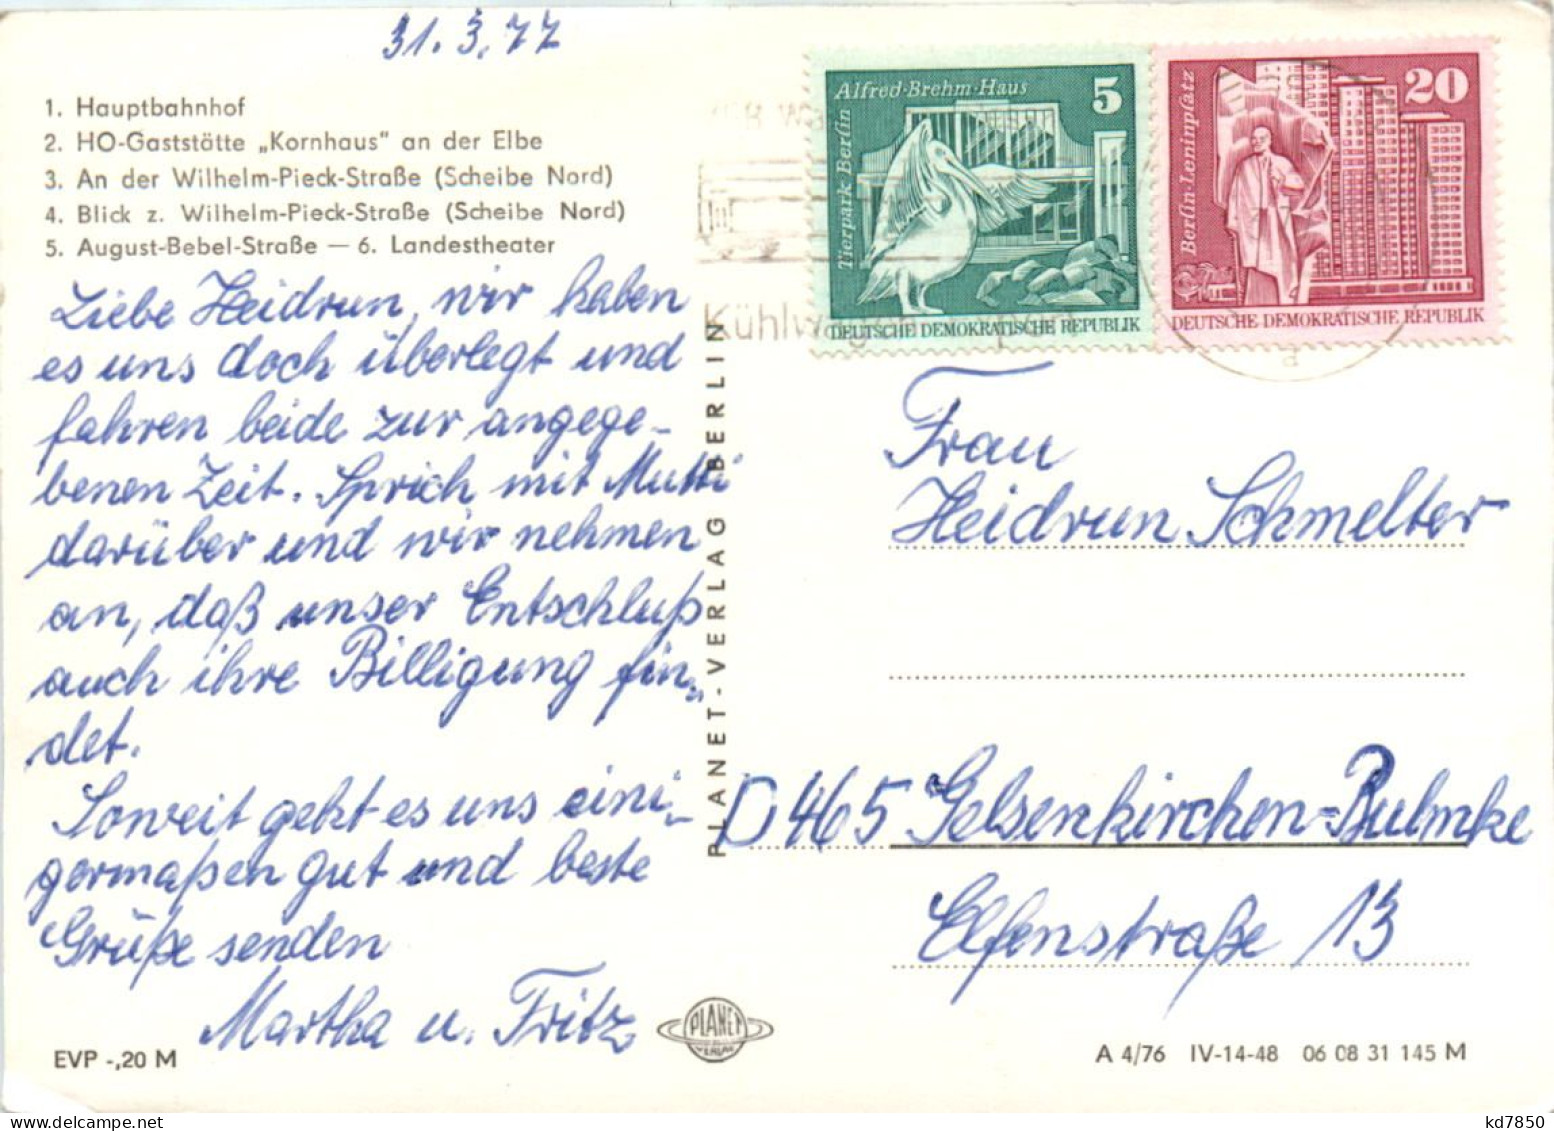 31.3.77
1. Hauptbahnhof
2. HO-Gaststötte „Kornhaus" an der Elbe
3. An der Wilhelm-Pieck-Straße (Scheibe Nord)
4. Blick z. Wilhelm-Pieck-Straße (Scheibe Nord)
5. August-Bebel-Straße — 6. Landestheater
Liebe Heidrun, wir haben
es uns doch überlegt und
fahren beide zur angege-
benen Zeit. Sprich mit Mutti
darüber und wir nehmen
an, daß unser Entschluß
auch ihre Billigung fin-
det.
Soweit geht es uns eini-
germaßen gut und beste
Grüße senden
Martha u. Fritz
EVP -,20 M
PLANET-VERLAG BERLIN
PLANET
VERLAG
Alfred-Brehm-Haus
5
Tierpark Berlin
DEUTSCHE DEMOKRATISCHE REPUBLIK
20
Berlin-Leninplatz
DEUTSCHE DEMOKRATISCHE REPUBLIK
Frau
Heidrun Schmelter
D 465 Gelsenkirchen-Bulmke
Elfenstraße 13
A 4/76 IV-14-48 06 08 31 145 M
kd7850